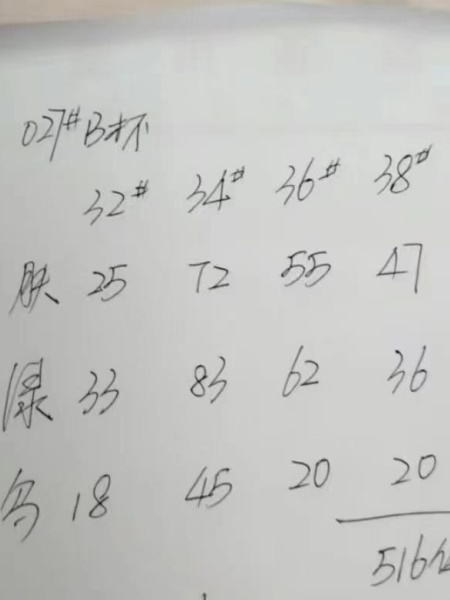 027# B杯
32# 34# 36# 38#
肤 25 72 55 47
绿 33 83 62 36
乌 18 45 20 20
516